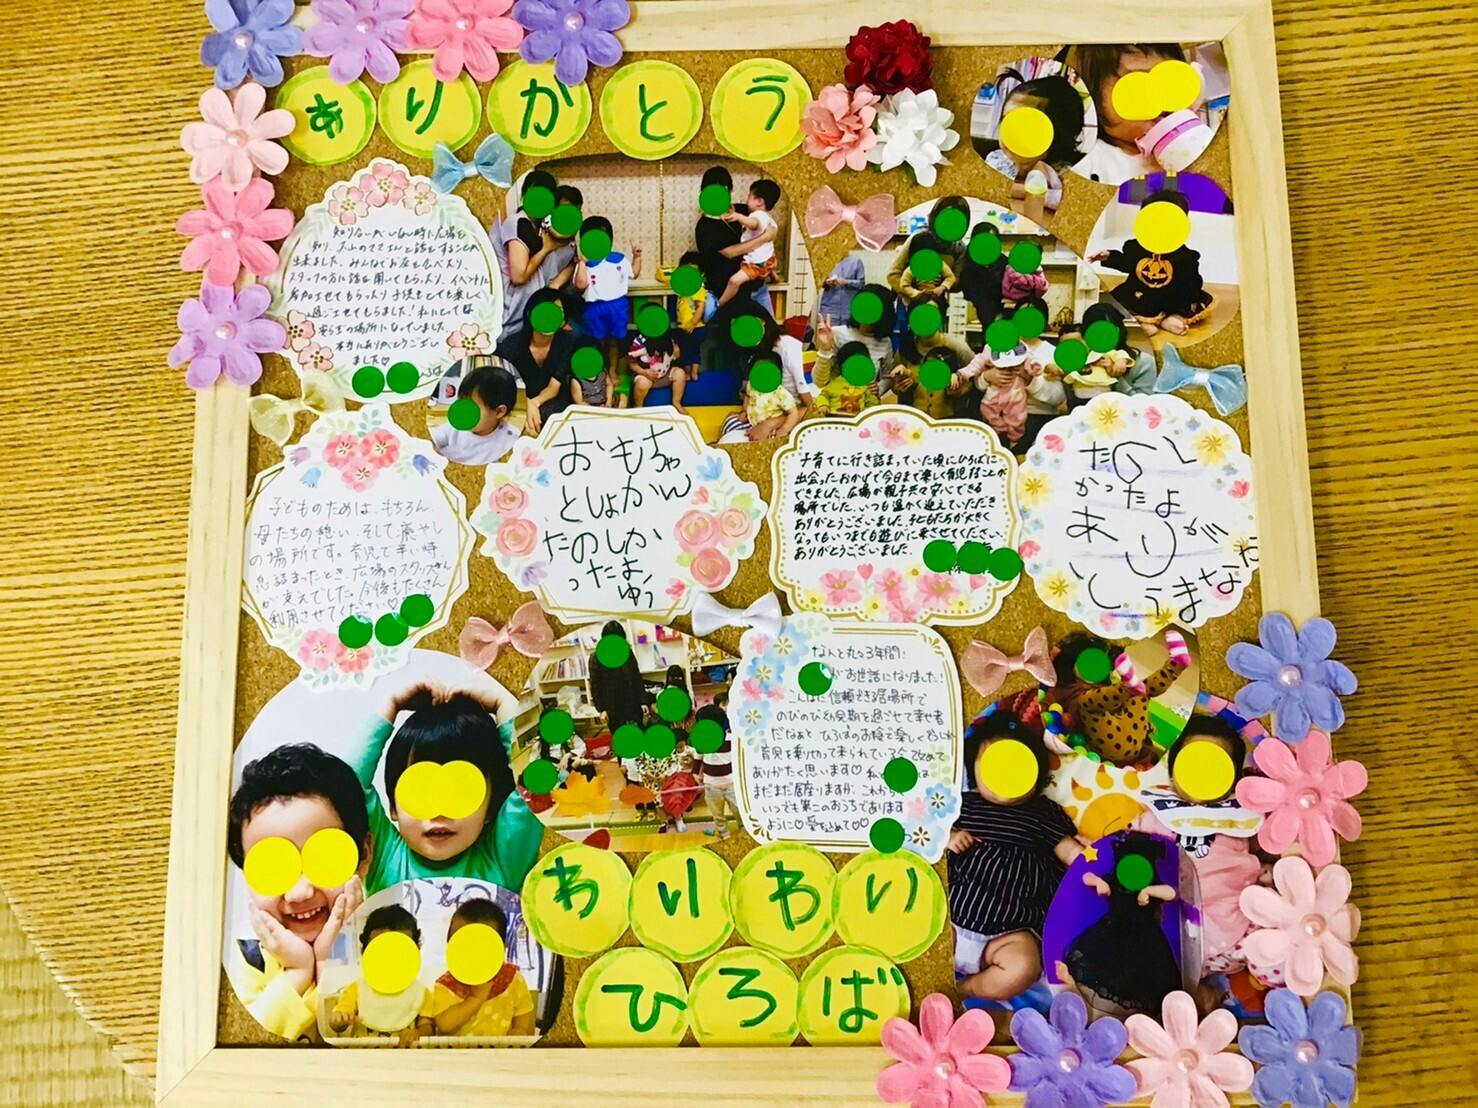 ありがとう
知らない人がいない時に広場を
知り、たくさんのママさんと話をすることが
出来ました。みんなでお店を
スタッフの方に話を聞いてもらったり、イベントに
参加させてもらったり子供もとても楽しく
過ごさせてもらました！私にとっても
安らぎの場所になっていました。
本当にありがとうござい
ました♡
子どものためは、もちろん、
母たちの憩い、そして癒やし
の場所です。育児で辛い時
息詰まったとき、広場のスタッフさん
が支えでした。今後もたくさん
利用させてください♡
おもちゃ
としょかん
たのしか
ったよ
ゆう
子育てに行き詰まっていた頃にひろばに
出会ったおかげで今日まで楽しく育児することが
できました。広場が親子共々安心できる
場所でした。いつも温かく迎えていただき
ありがとうございました。子どもたちが大きく
なってもいつまでも遊びに来させてください。
ありがとうございました。
たのし
かったよ
ありが
とうまなた
なんと丸3年間！
がお世話になりました！
こんなに信頼できる居場所で
のびのび幼児期を過ごせて幸せ者
だなぁと ひろばのお陰で楽しく
育児を乗り切って来られている今 改めて
ありがたく思います♡ 私
まだまだ居座りますが、これから
いつでも第二のおうちであります
ように♡愛を込めて♡♡
わいわい
ひろば